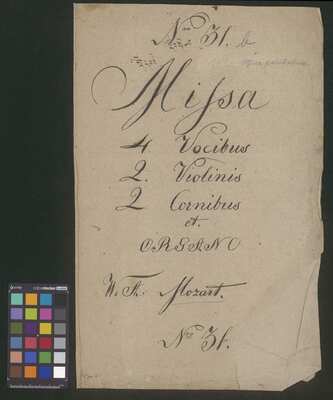 Nro 31. b
Missa
4 Vocibus
2. Violinis
2 Cornibus
et.
ORGANO
W. A. Mozart.
Nro 31.